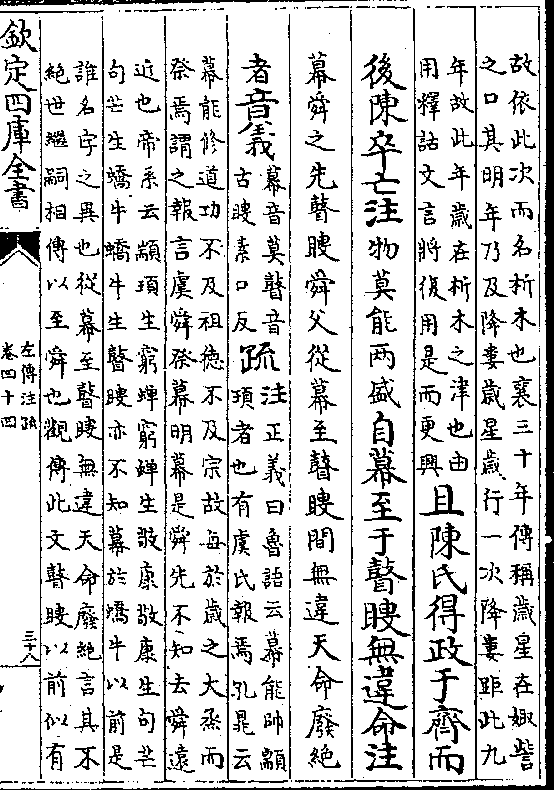 故依此次而名析木也襄三十年傳稱歲星在娵訾
之口其明年乃及降婁歲星歲行一次降婁距此九
年故此年歲在析木之津也由
用釋詁文言將復用是而更興
且陳氏得政于齊而
後陳卒亡注物莫能两盛自幕至于瞽瞍無違命注
幕舜之先瞽瞍舜父從幕至瞽瞍間無違天命廢絶
者音義
幕音莫瞽音
古瞍素口反
疏
注正義曰魯語云幕能帥顓
頊者也有虞氏報焉孔晁云
幕能修道功不及祖德不及宗故每於歲之大烝而
祭焉謂之報言虞舜祭幕明幕是舜先不知去舜遠
近也帝系云顓頊生窮蟬窮蟬生敬康敬康生句芒
句芒生蟜牛蟜牛生瞽瞍亦不知幕於蟜牛以前是
誰名字之異也從幕至瞽瞍無違天命廢絶言其不
絶世繼嗣相傳以至舜也觀傳此文瞽瞍以前似有
欽定四庫全書
左傳注疏
卷四十四
三十八